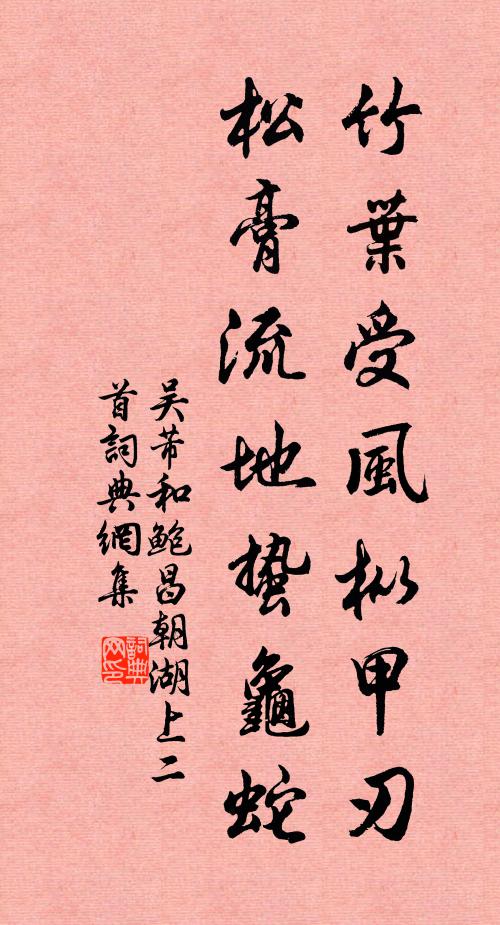 竹葉受風摐甲刃
松膏流地蟄龜蛇
吴芾和鲍昌朝湖上二
首詞典網集
詞典
网印